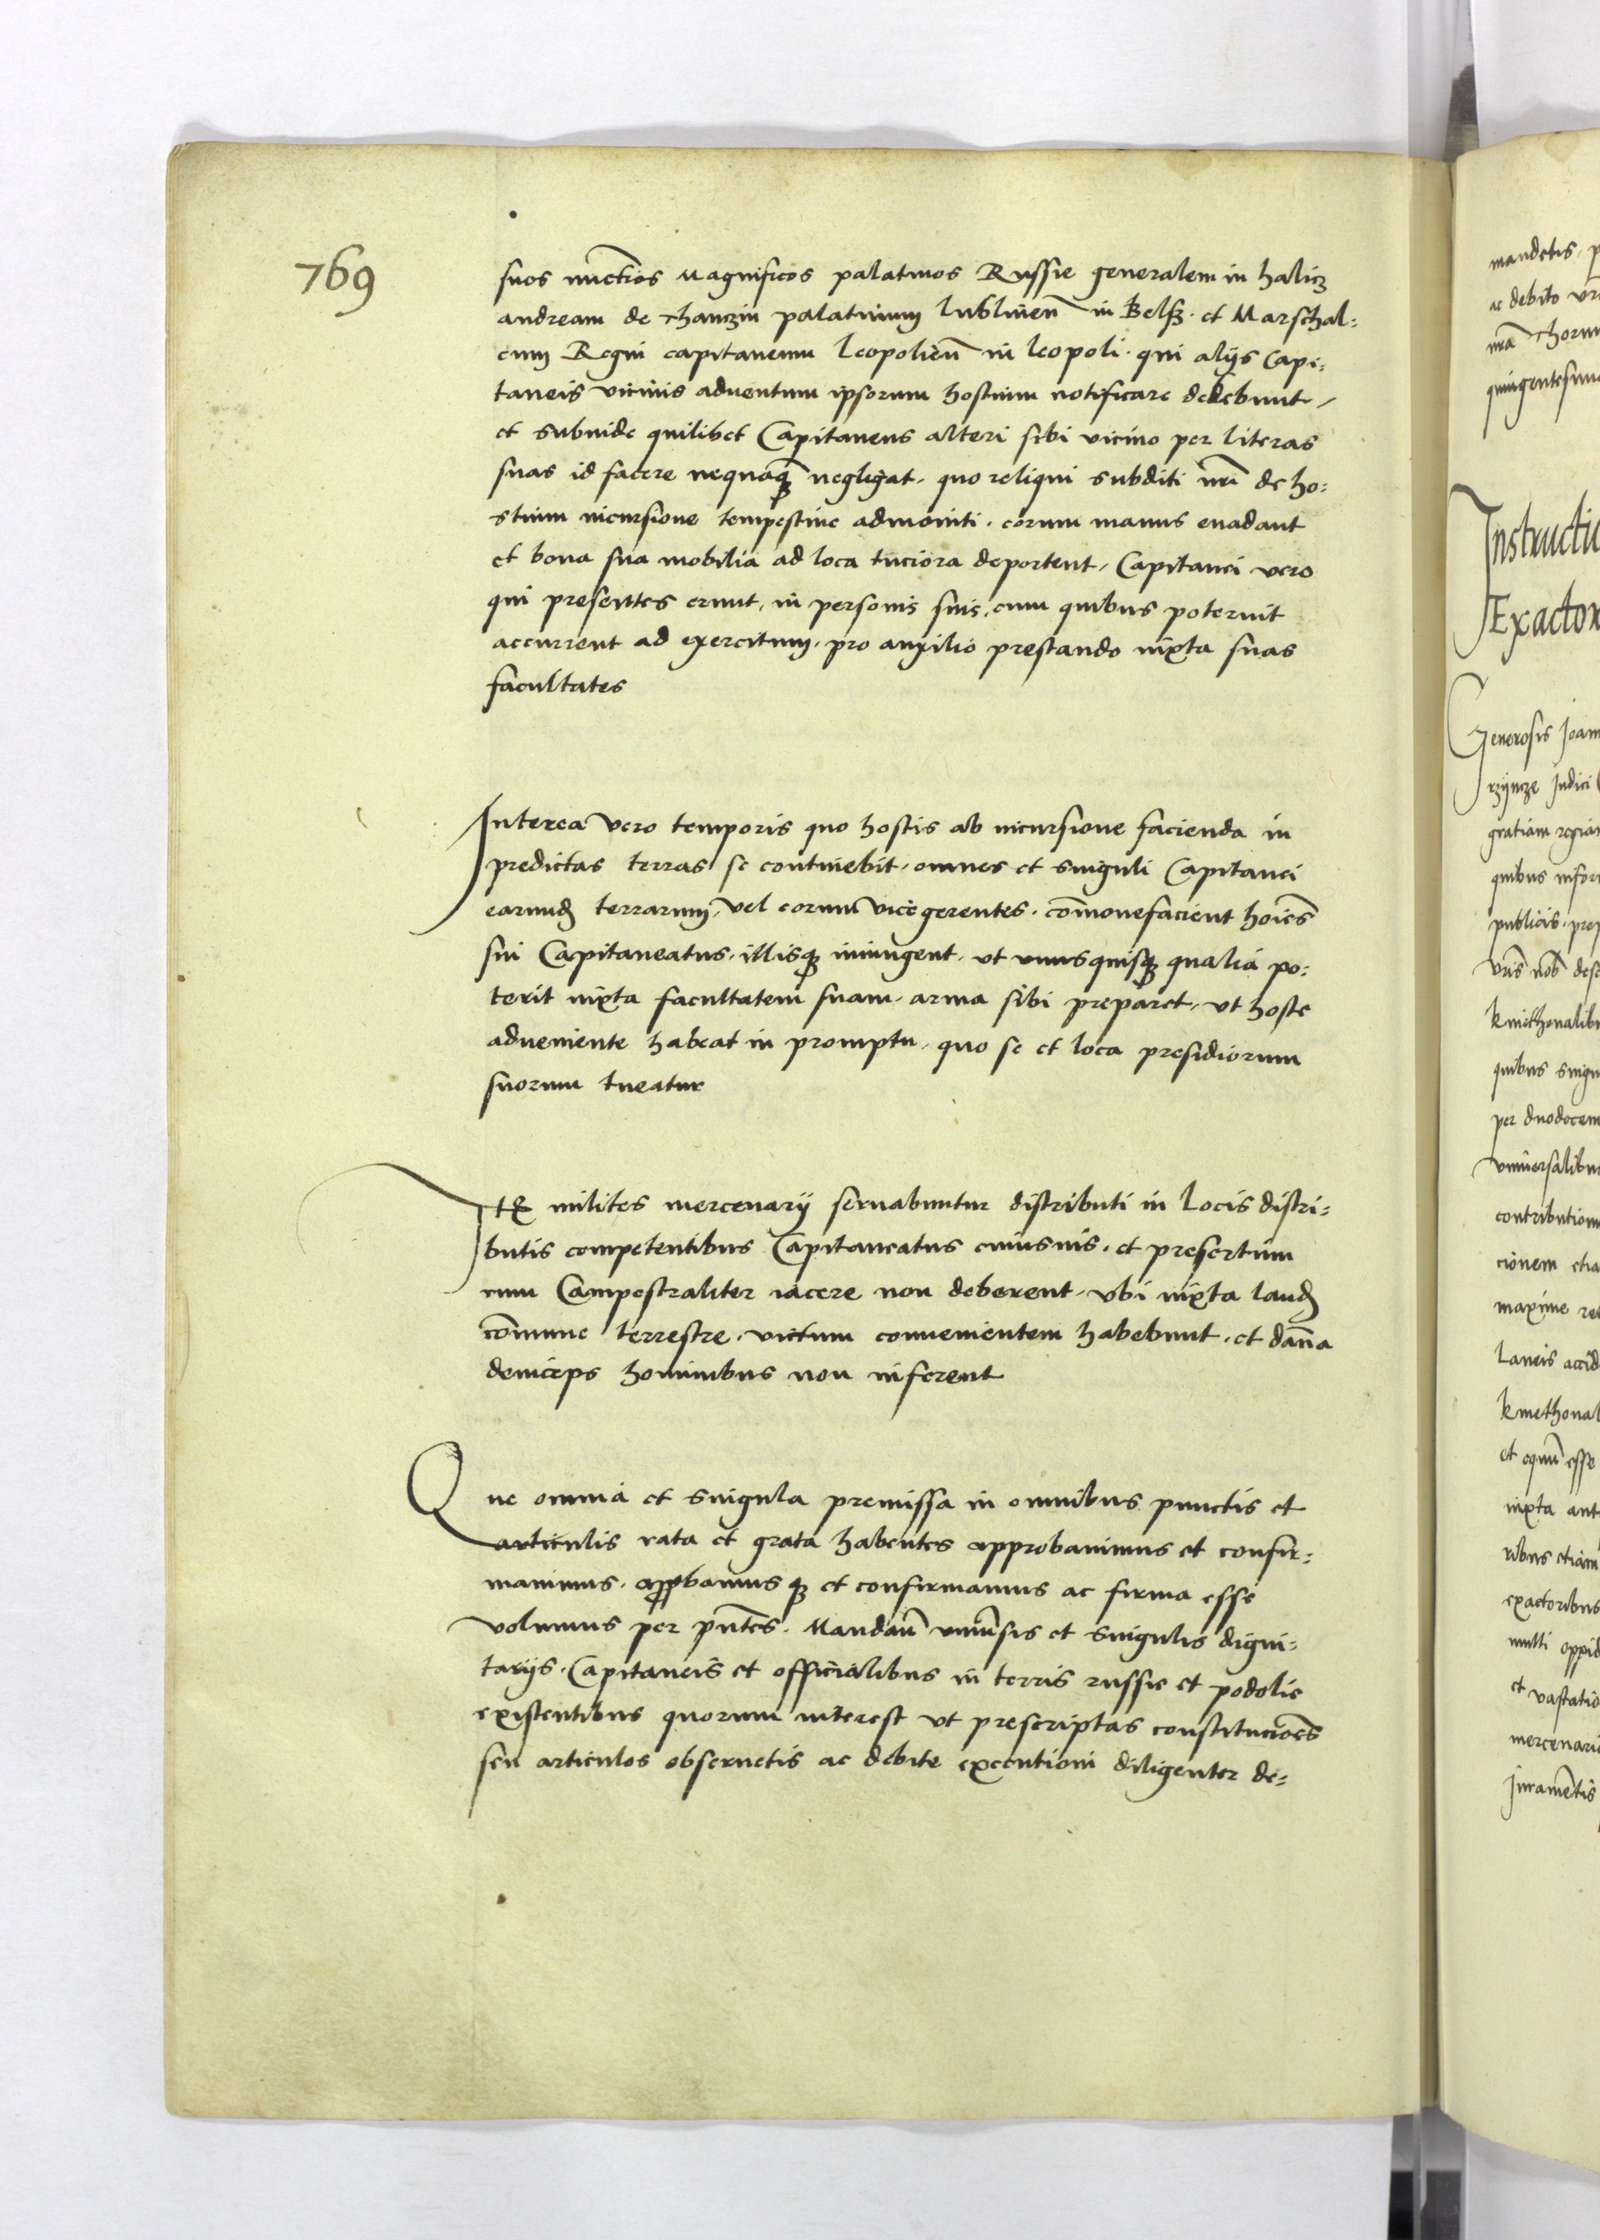 769
suos nuctios Magnificos palatinos Russie generalem in halicz
andream de thanczin palatinum lublineñ in Belsz · et Marschal=
cum Regni capitaneum leopolieñ in leopoli · qui alijs Capi=
taneis vicinis adventum ipsorum hostium notificare debebunt,
et subinde quilibet Capitaneus alteri sibi vicino per literas
suas id facere nequaq̃ negligat, quo reliqui subditi nr̃i de ho=
stium incursione tempestive admoniti, eorum manus evadant
et bona sua mobilia ad loca tuciora deportent, Capitanei vero
qui presentes erunt, in personis suis, cum quibus poterint
accurrent ad exercitum, pro auxilio prestando iuxta suas
facultates
Interea vero temporis quo hostis ab incursione facienda in
predictas terras se continebit, omnes et singuli Capitanei
earund terrarum, vel eorum vice gerentes, com̃onefacient hoĩes
sui Capitaneatus, illisq; iniungent, ut unusquisq; qualia po=
terit iuxta facultatem suam, arma sibi preparet, ut hoste
adveniente habeat in promptu, quo se et loca presidiorum
suorum tueatur
Itẽ milites mercenarij servabuntur distributi in locis distri=
butis competentibus Capitaneatus cuiusvis, et presertim
cum Campestraliter iacere non deberent, vbi iuxta laud
com̃une terrestre, victum convenientem habebunt, et dam̃a
deinceps hominibus non inferent
Que omnia et singula premissa in omnibus punctis et
articulis rata et grata habentes approbavimus et confir=
mavimus, approbamus q; et confirmamus ac firma esse
volumus per pñtes. Mandam̃ uniṽsis et singulis digni=
tarijs, Capitaneis et officialibus in terris russie et podolie
existentibus quorum interest ut prescriptas constitucioẽs
seu articulos observetis ac debite executioni diligenter de=
mandetis,
ac debito
Thorun
quingentesimo
Instructi
Exactor
Generosis Joan
rzijncze Judici
gratiam regiam
quibus infor
publicis, prep
vr̃is nob̃ des
kmethonalibu
quibus singu
per duodecem
universalibu
contribution
cionem etia
maxime re
laneis accid
kmethonal
et equũ esse
iuxta ant
ribus etiam
exactoribus
multi oppid
et vastatio
mercenari
Juramẽtis